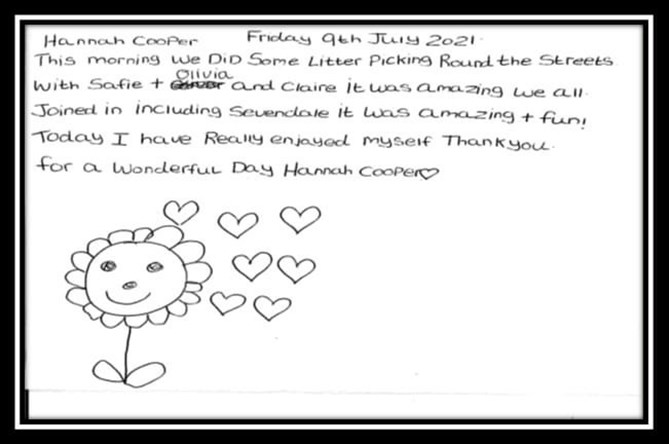 Hannah Cooper Friday 9th July 2021.
This morning we DiD Some Litter Picking Round the Streets
With Safie + Olivia and Claire it was amazing we all
Joined in including Sevendale it was amazing + fun!
Today I have Really enjoyed myself Thankyou.
for a Wonderful Day Hannah Cooper♡